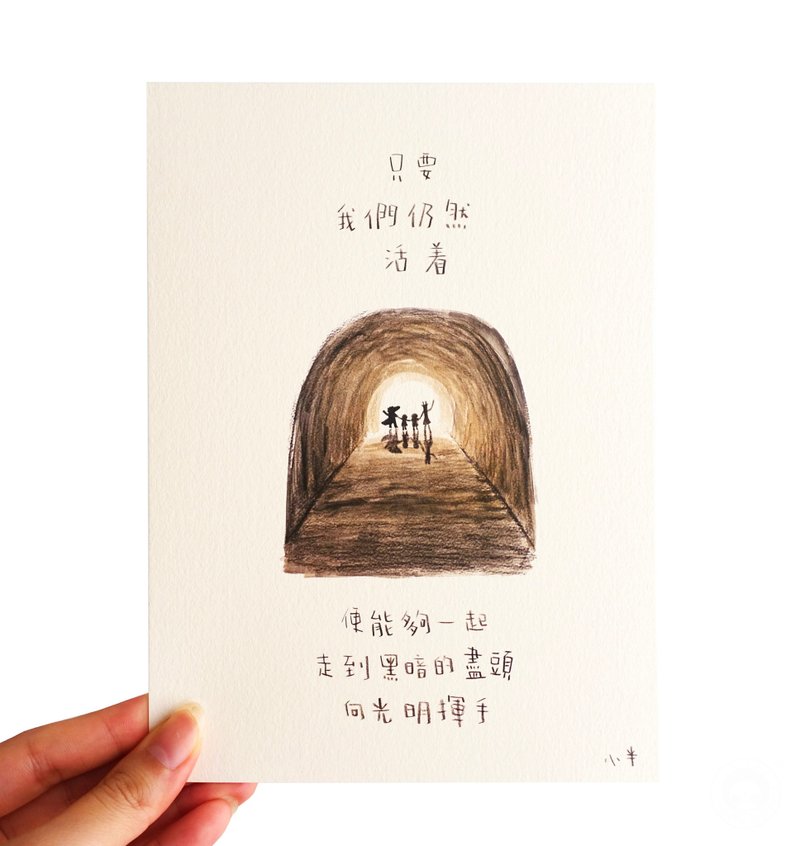 只要
我們仍然
活着
便能夠一起
走到黑暗的盡頭
向光明揮手
小半